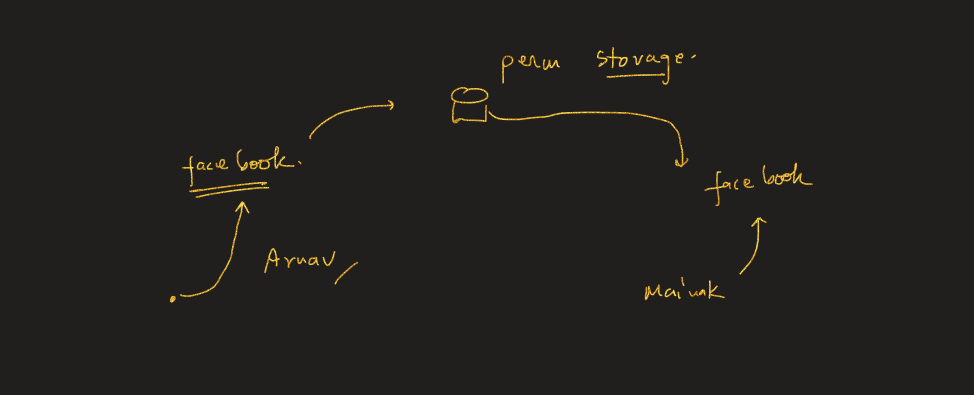 perm storage.
facebook.
facebook
Arnav
Mainak